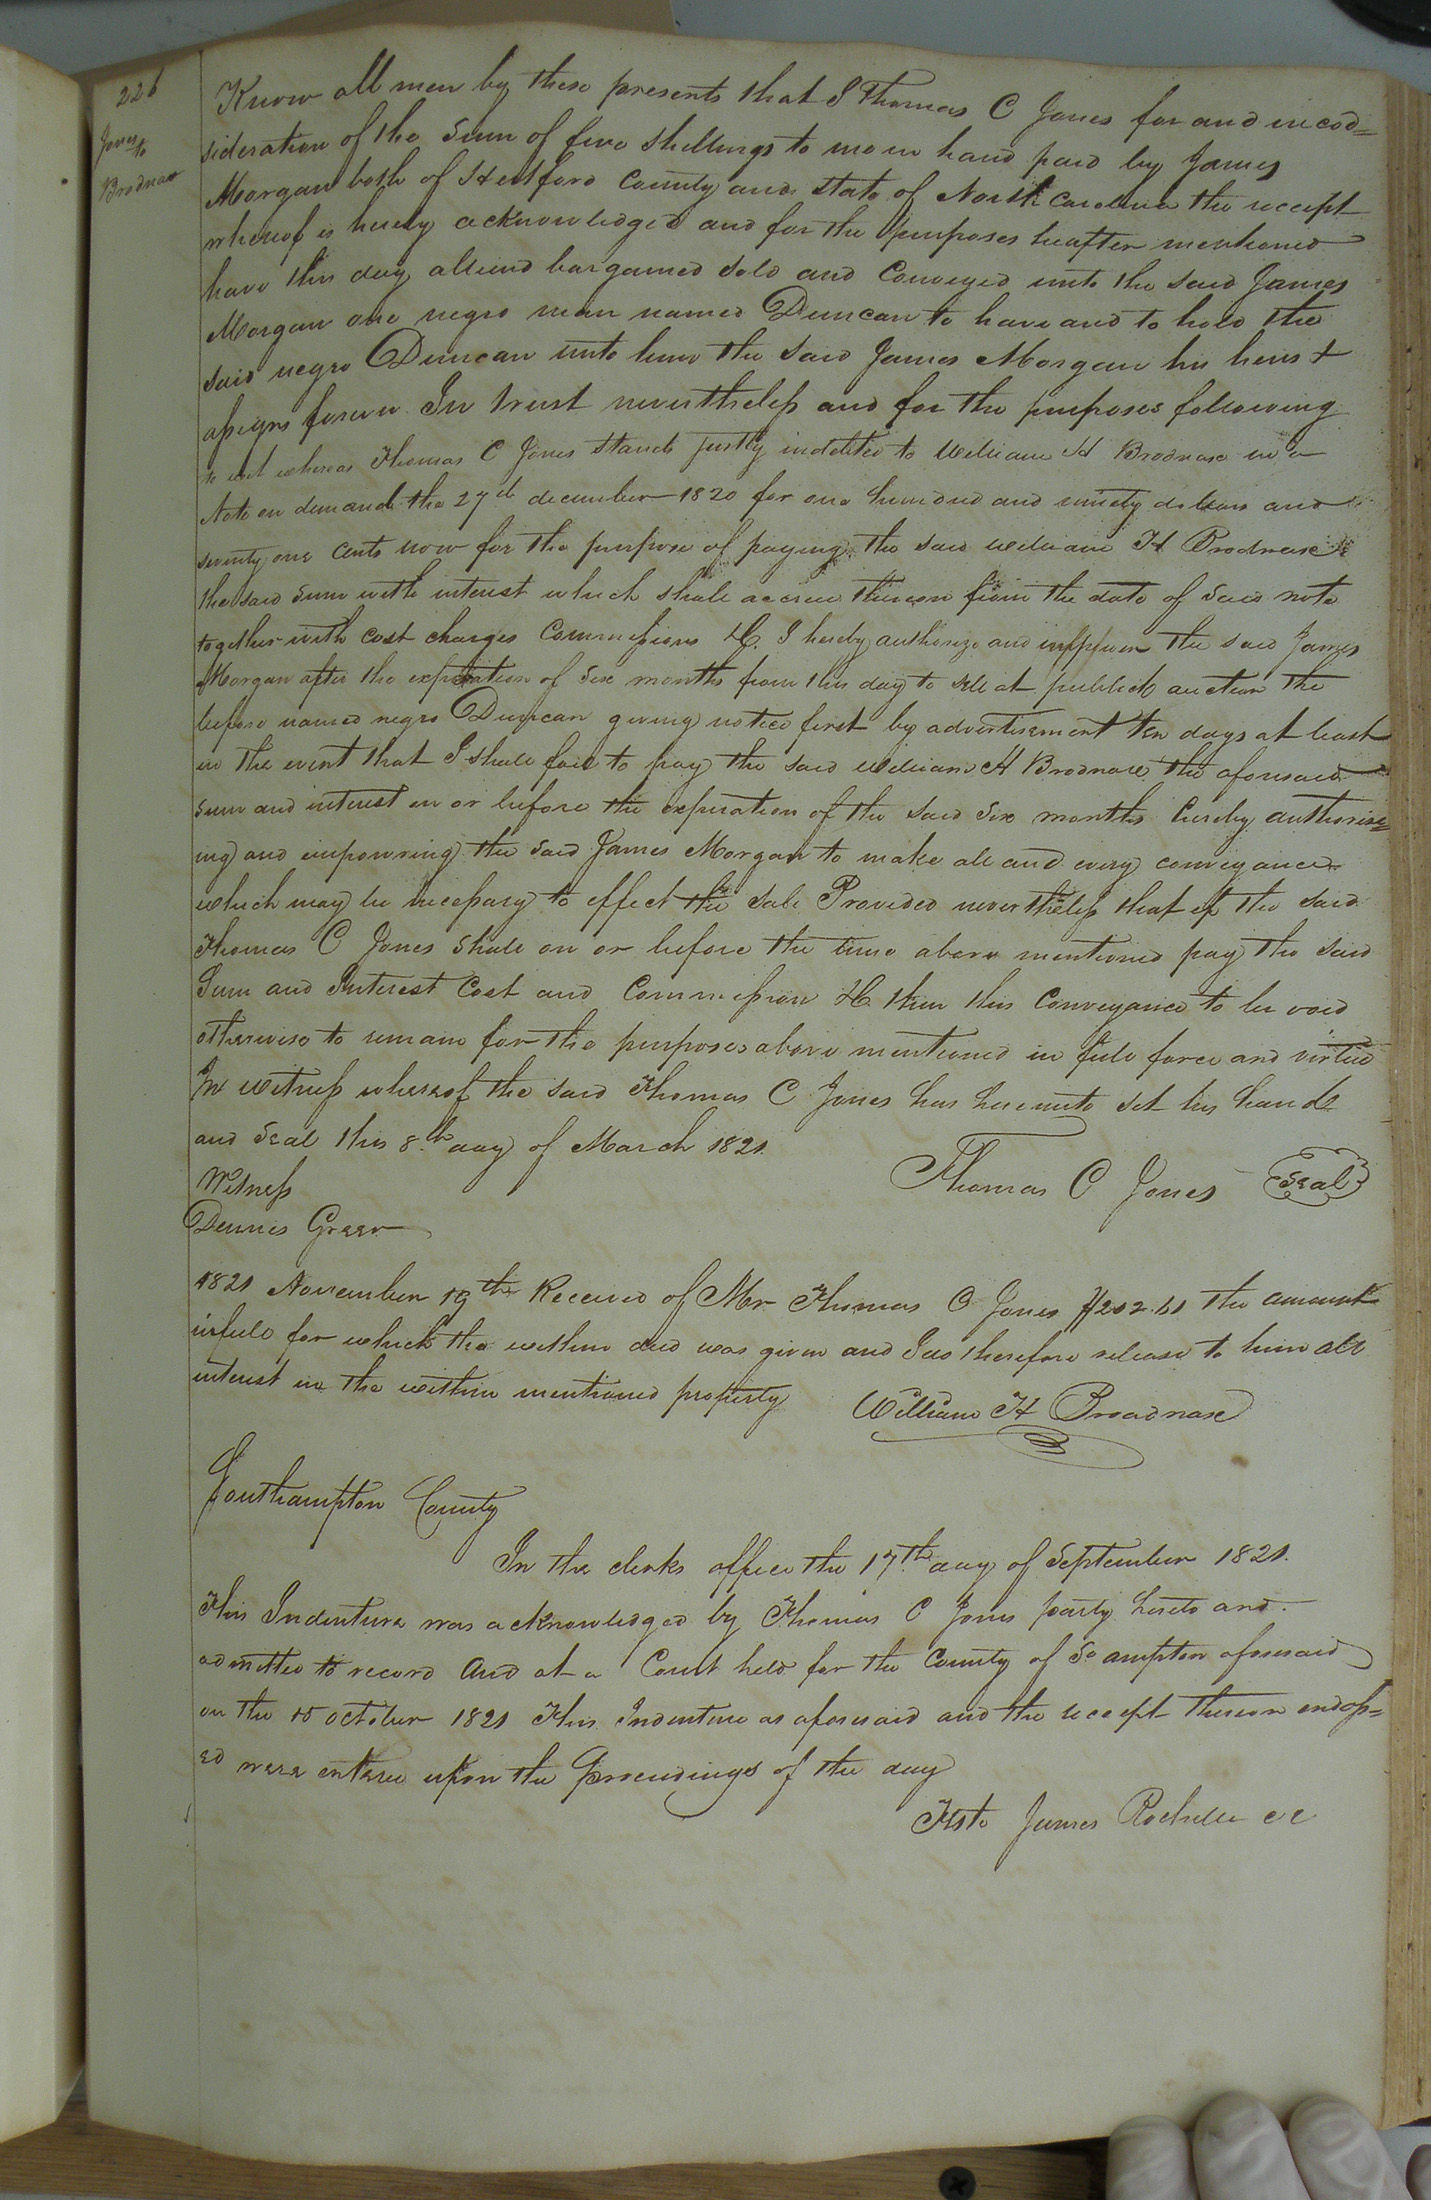 226
Jones to
Brodnax
Know all men by these presents that I Thomas C Jones for and in cod=
sideration of the Sum of five Shillings to me in hand paid by James
Morgan both of Hertford County and State of North Carolina the receipt
whereof is hereby acknowledged and for the purposes heafter mentioned
have this day aliend bargained Sold and Conveyed unto the said James
Morgan one negro man named Duncan to have and to hold the
said negro Duncan unto him the said James Morgan his heirs &
assigns forever In trust nevertheless and for the purposes following
to wit whereas Thomas C Jones Stands justly indebted to William H Brodnax in a
Note on demand the 27th december 1820 for one hundred and ninety dollars and
seventy one Cents now for the purpose of paying the said William H Brodnax
the said Sum with interest which shall accrue thereon from the date of said note
together with cost charges Commissions &c. I hereby authorize and impower the said James
Morgan after the expiration of Six months from this day to sell at publick auction the
before named negro Duncan giving notice first by advertisement ten days at least
in the event that I shall fail to pay the said William H Brodnax the aforesaid
Sum and interest on or before the expiration of the said Six months hereby authoriz=
ing and impowring the said James Morgan to make all and every conveyance
which may be necessary to effect the Sale Provided nevertheless that if the said
Thomas C Jones Shall on or before the time above mentioned pay the said
Sum and Interest Cost and Commission &c. then this Conveyance to be void
otherwise to remain for the purposes above mentioned in full force and virtue
In Witness whereof the said Thomas C Jones has hereunto set his hand
and Seal this 8th day of March 1821
Thomas C Jones Seal
Witness
Dennis Greer
1821 November 19th Received of Mr Thomas C Jones $202.61 the amount
infull for which the within deed was given and I do therefore release to him all
interest in the within mentioned property William H Broadnax
Southampton County
In the clerks office the 17th day of September 1821.
This Indenture was acknowledged by Thomas C Jones party hereto and
admitted to record And at a Court held for the County of So ampton aforesaid
on the 15 october 1821 This Indenture as aforesaid and the receipt thereon endoss=
ed were entered upon the Proceedings of the day
Teste James Rochelle cc